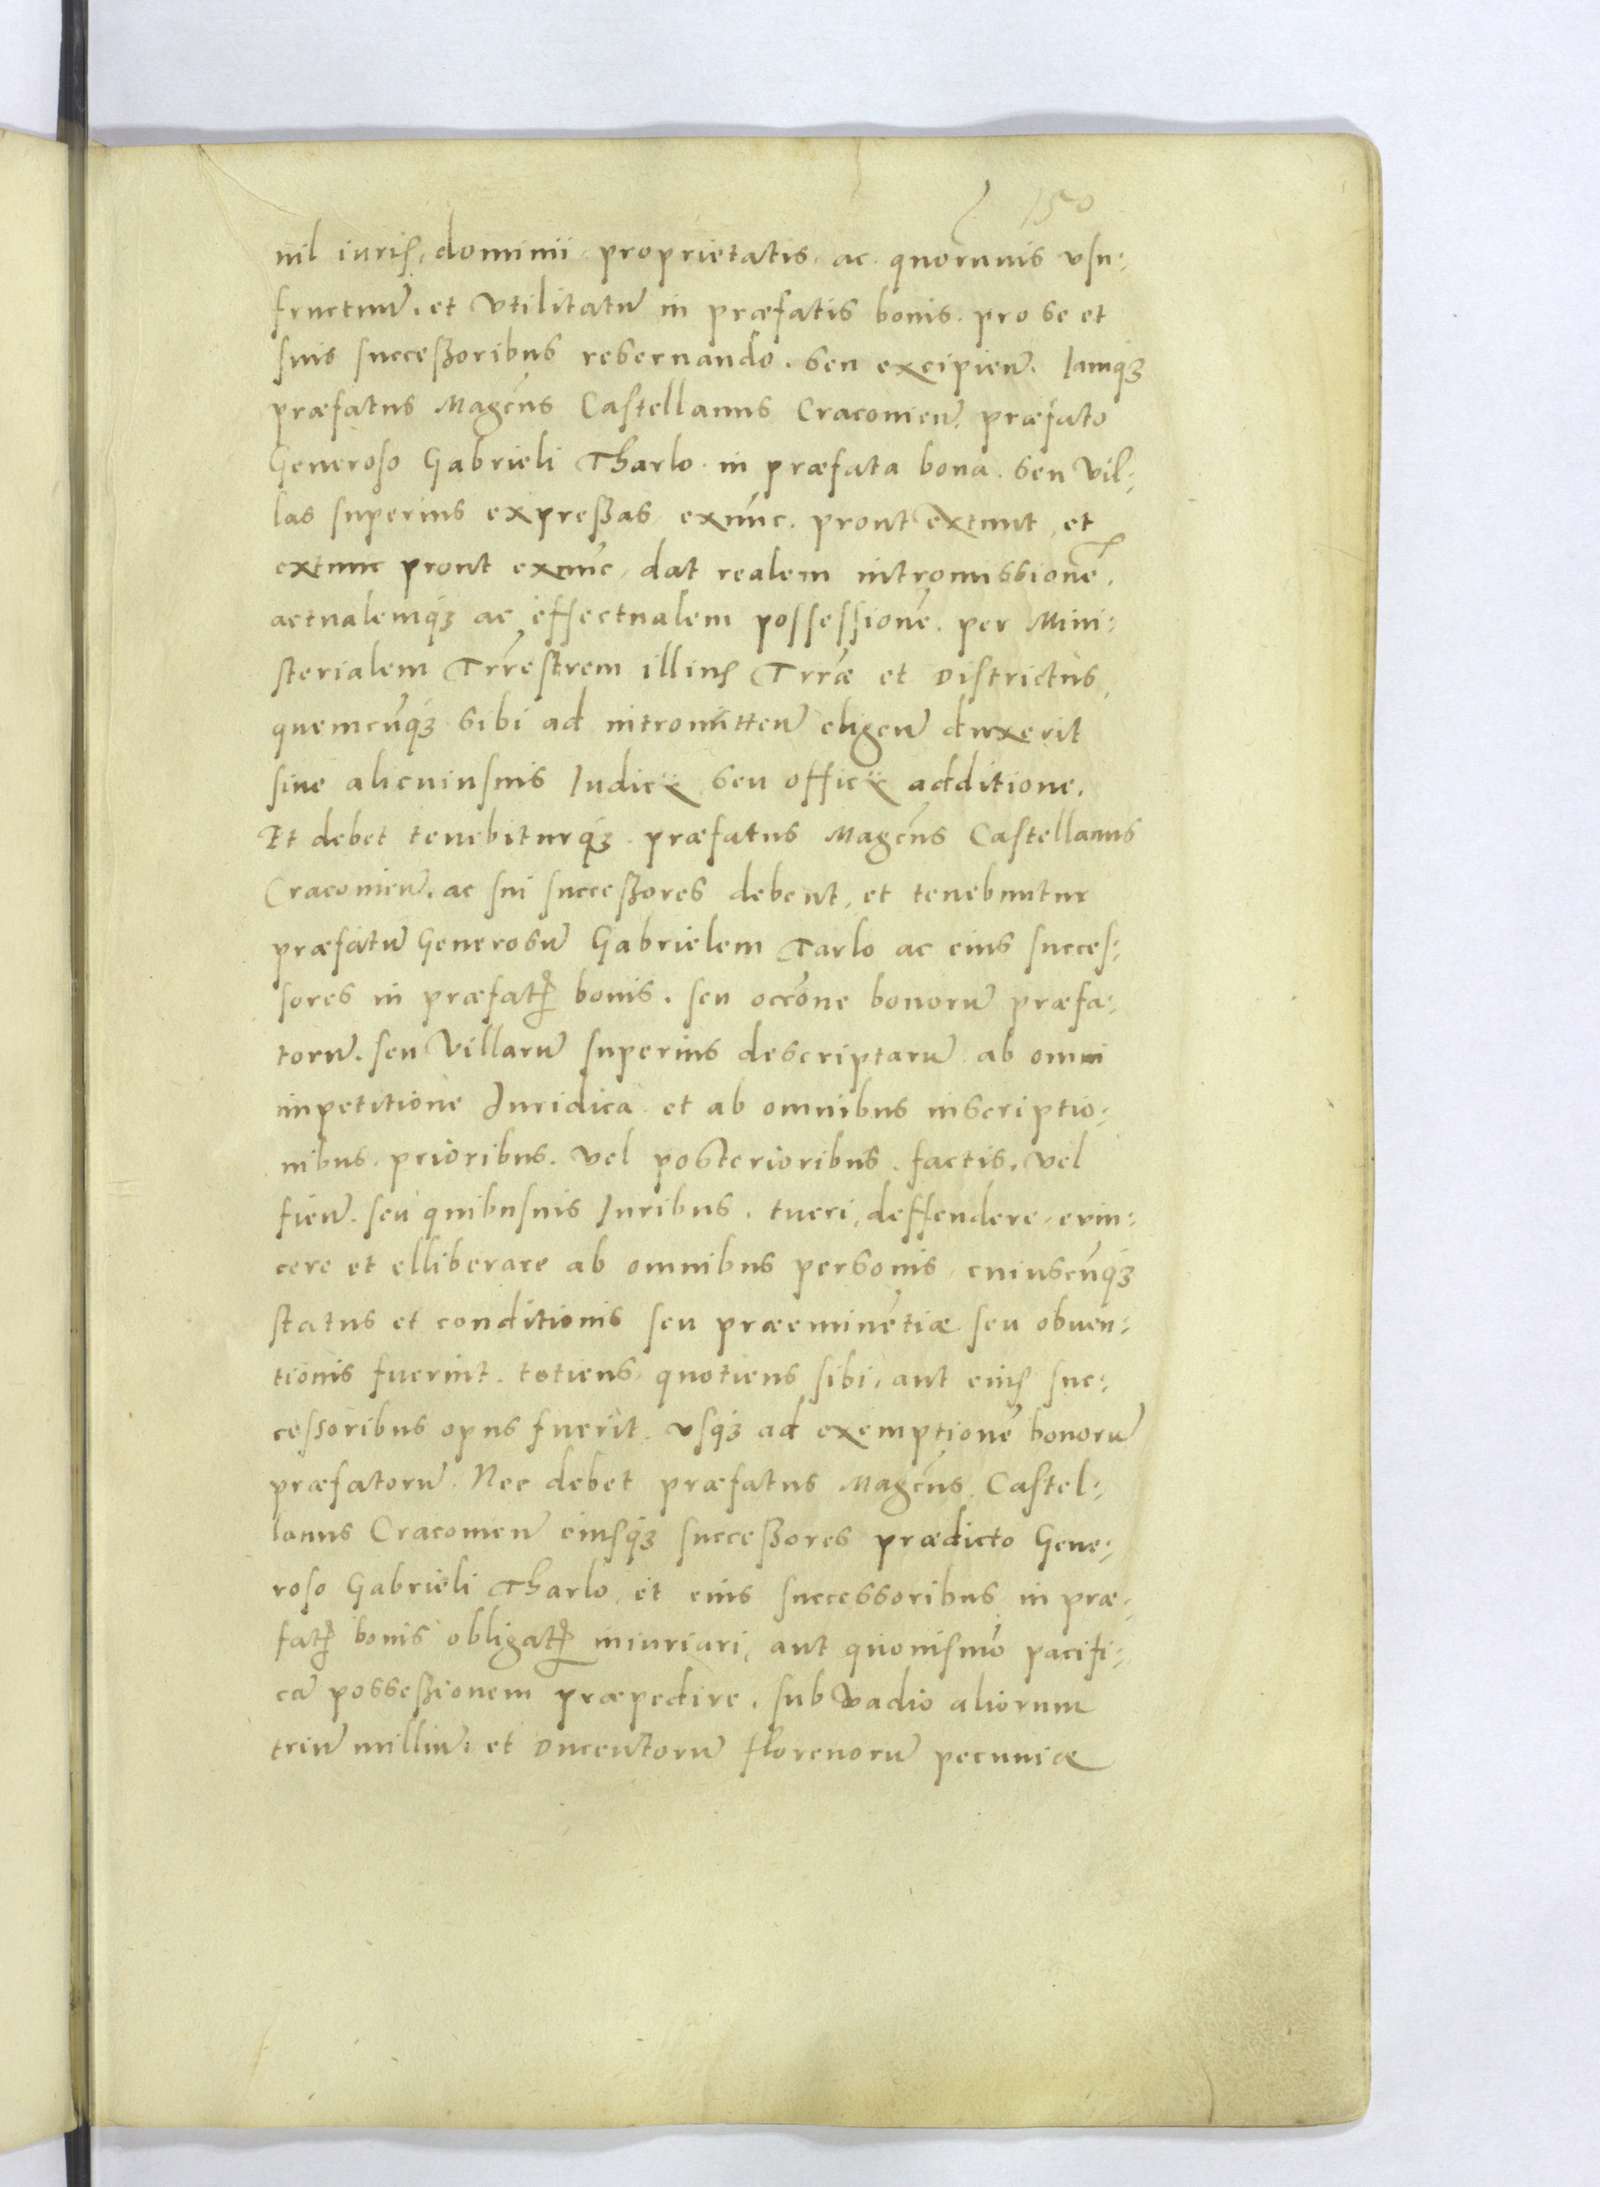 150
nil iuris, dominii proprietatis, ac quorumuis vsu:
fructuũ. et vtilitatũ in præfatis bonis. pro se et
suis succeßoribus reseruando. seu excipieñ. Iamq3
præfatus Magcũs Castellanus Cracovieñ. præfato
Generoso Gabrieli Tharlo. in præfata bona. seu vil:
las superius expreßas exnũc. prout extunt, et
extunc prout exnũc, dat realem intromissionẽ.
actualemq3 ac effectualem possessionẽ. per Mini:
sterialem Trr̃estrem illius Trr̃æ et Districtus,
quemcũq3 sibi ad intromitteñ eligeñ duxerit
sine alicuiusuis Iudicÿ seu officÿ additione.
Et debet tenebiturq3. præfatus Magcũs Castellanus
Cracovieñ. ac sui succeßores debent, et tenebuntur
præfatũ Generosũ Gabrielem Tarlo ac eius succes:
sores in præfatꝭ bonis. seu occõne bonorũ præfa:
torũ. seu villarũ superius descriptarũ ab omni
inpetitione Iuridica. et ab omnibus inscriptio:
nibus. prioribus. vel posterioribus. factis. vel
fieñ. seu quibusuis Iuribus. tueri, deffendere, evin:
cere et elliberare ab omnibus personis, cuiuscũq3
status et conditionis seu præeminẽtiæ seu obuen:
tionis fuerint. totiens, quotiens sibi, aut eius suc:
cessoribus opus fuerit. vsq3 ad exemptionẽ bonorũ
præfatorũ. Nec debet præfatus Magcũs Castel:
lanus Cracovieñ eiusq3 succeßores prædicto Gene:
roso Gabrieli Tharlo, et eius successoribus in præ:
fatꝭ bonis obligatꝭ iniuriari, aut quouismõ pacifi:
cã possessionem præpedire. sub vadio aliorum
triũ milliũ. et Ducentorũ florenorũ pecuniæ